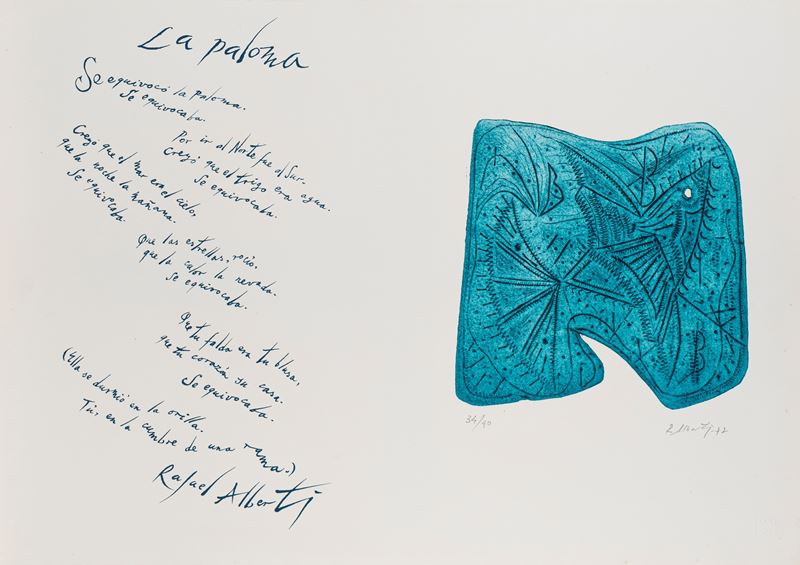 La paloma
Se equivocó la paloma.
Se equivocaba.
Por ir al Norte fue al Sur.
Creyó que el trigo era agua.
Se equivocaba.
Creyó que el mar era el cielo,
que la noche la mañana.
Se equivocaba.
Que las estrellas, rocío,
que la calor la nevada.
Se equivocaba.
Que tu falda era tu blusa,
que tu corazón su casa.
Se equivocaba.
(Ella se durmió en la orilla.
Tú, en la cumbre de una rama.)
Rafael Alberti
34/90